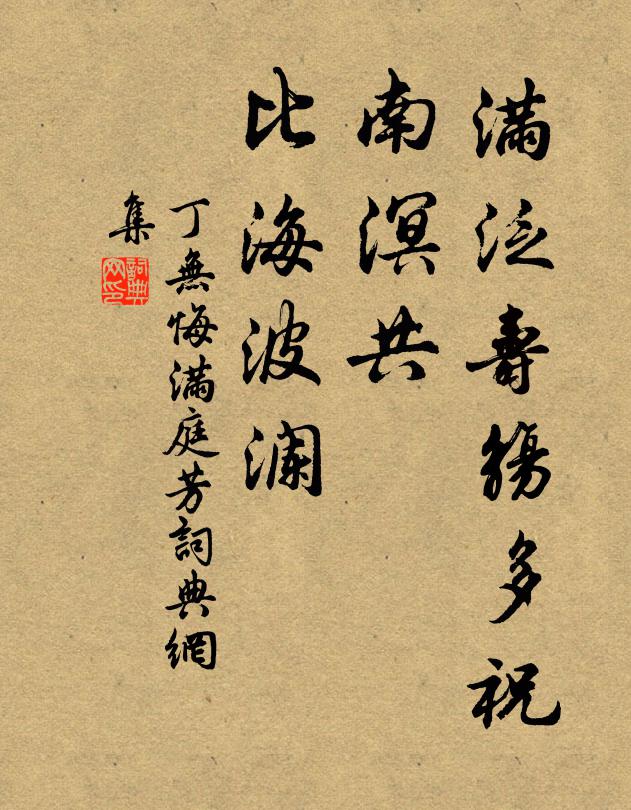 滿泛壽觴多祝
南溟共
比海波瀾
丁無悔滿庭芳詞典網
集
詞典網印